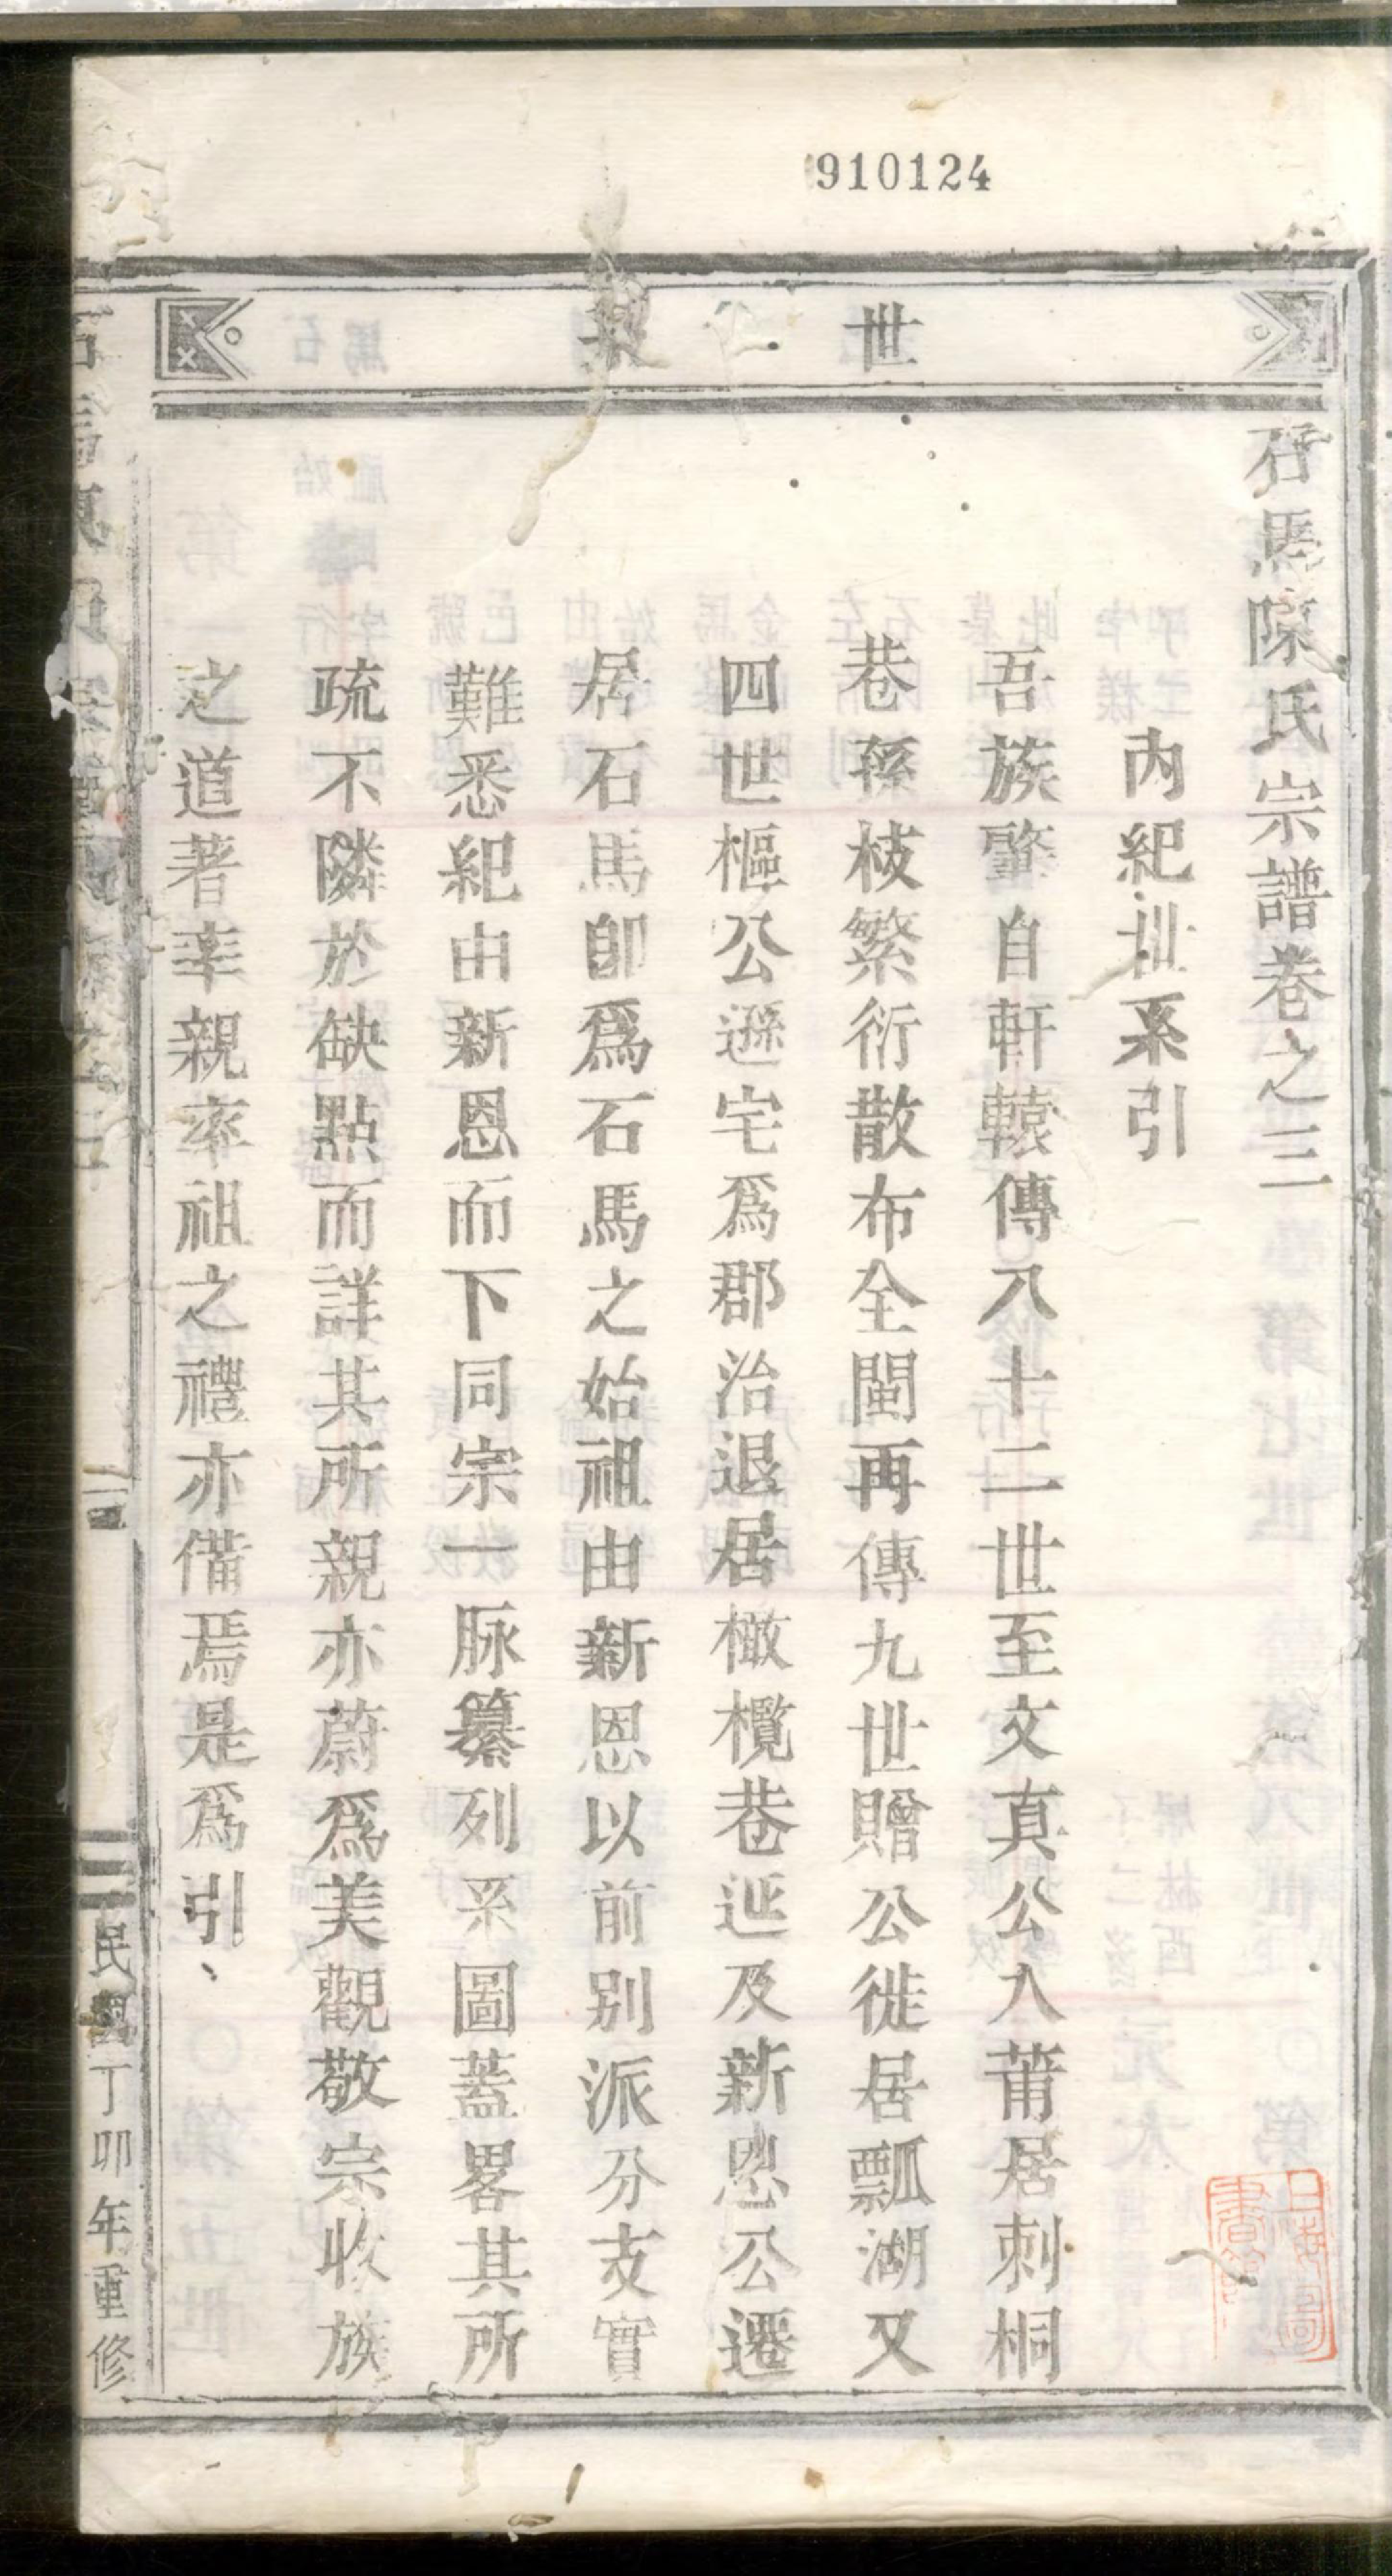 910124
世系
石馬陳氏宗譜卷之三
內紀世系引
吾族肇自軒轅傳八十二世至文真公入莆居刺桐
巷孫枝繁衍散布全閩再傳九世贈公徙居瓢湖又
四世樞公遜宅爲郡治退居橄欖巷延及新恩公遷
居石馬卽爲石馬之始祖由新恩以前别派分支實
難悉紀由新恩而下同宗一脉纂列系圖蓋畧其所
疏不隣於缺點而詳其所親亦蔚爲美觀敬宗收族
之道著率親率祖之禮亦備焉是爲引、
民國丁卯年重修